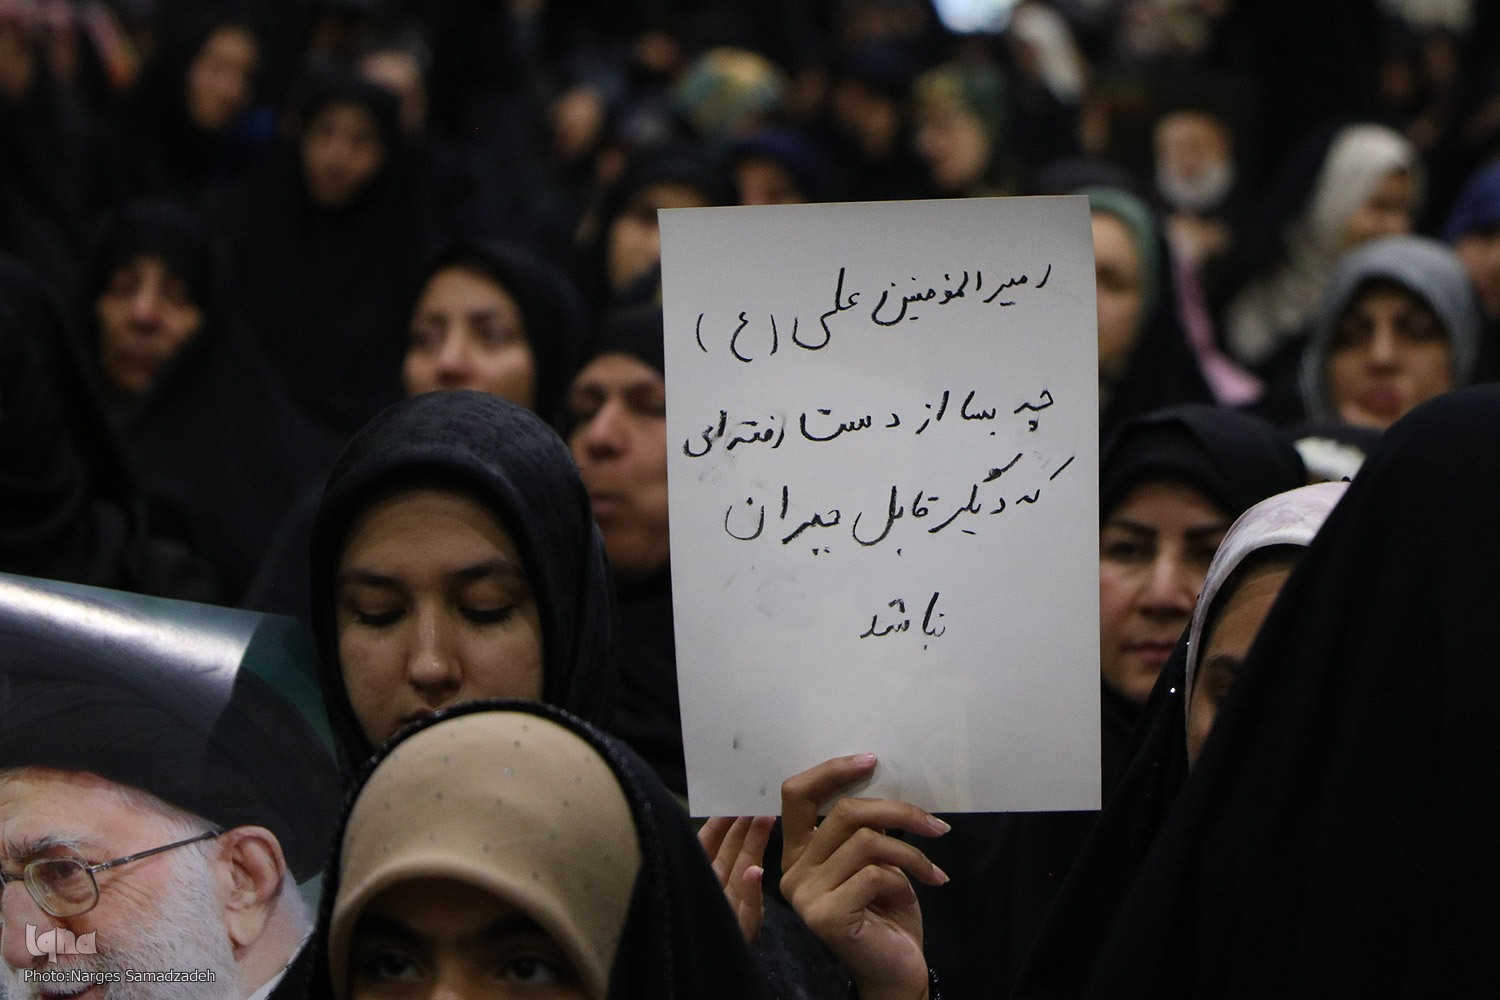 امیرالمؤمنین علی (ع)
چه بسا از دست رفته‌ای
که دیگر قابل جبران
نباشد
iqna
Photo:Narges Samadzadeh